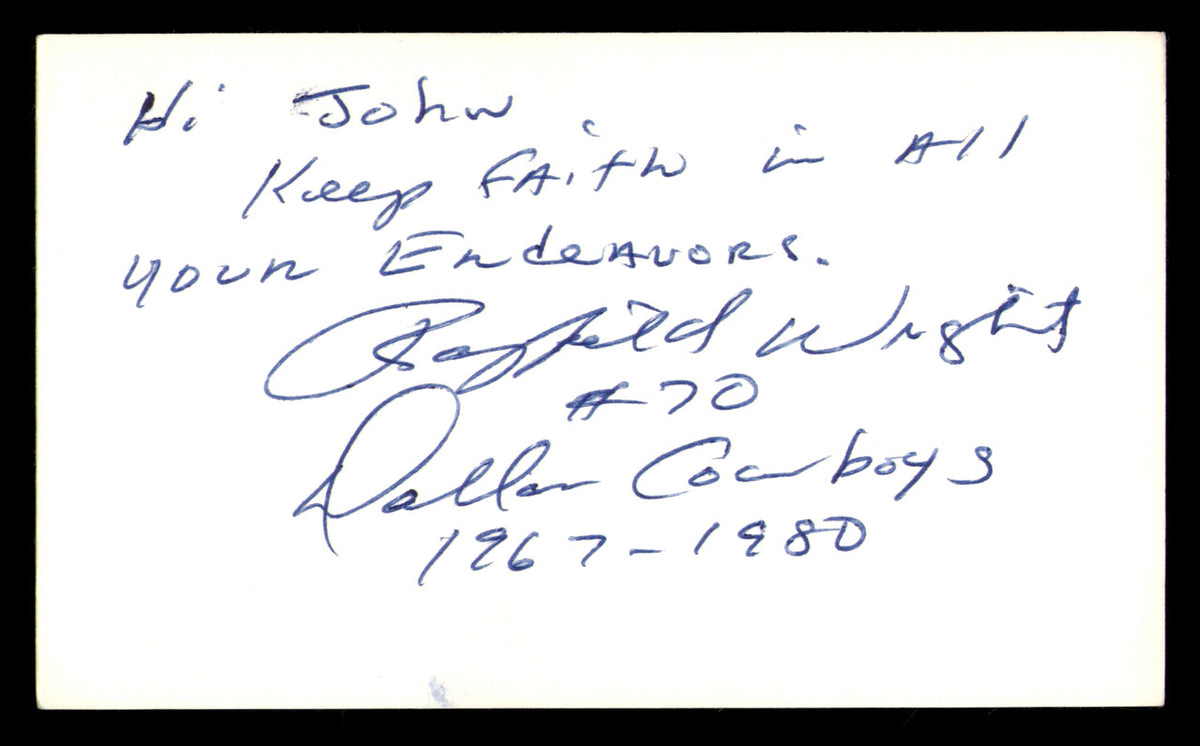 Hi John
Keep FAith in All
your EndeAvORs.
Rayfield Wright
#70
Dallas Cowboys
1967-1980